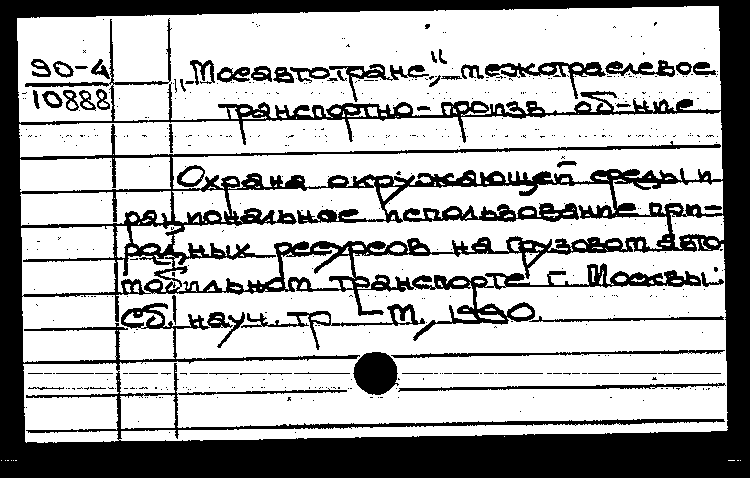 90-4
10888
„Мосавтотранс“, межотраслевое
транспортно-произв. об-ние
Охрана окружающей среды и
рациональное использование при=
родных ресурсов на грузовом авто
мобильном транспорте г. Москвы:
Сб. науч. тр – М., 1990.